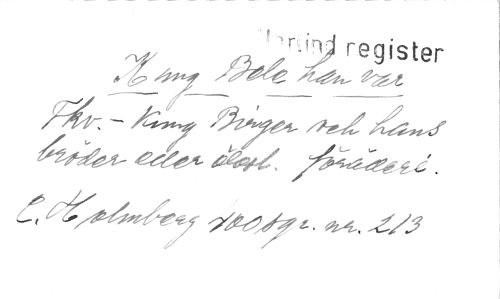 register
Kung Bele han var
Fkv. - Kung Birger och hans
bröder eller förräderi.
C. Holmberg 100 sgr. nr. 213